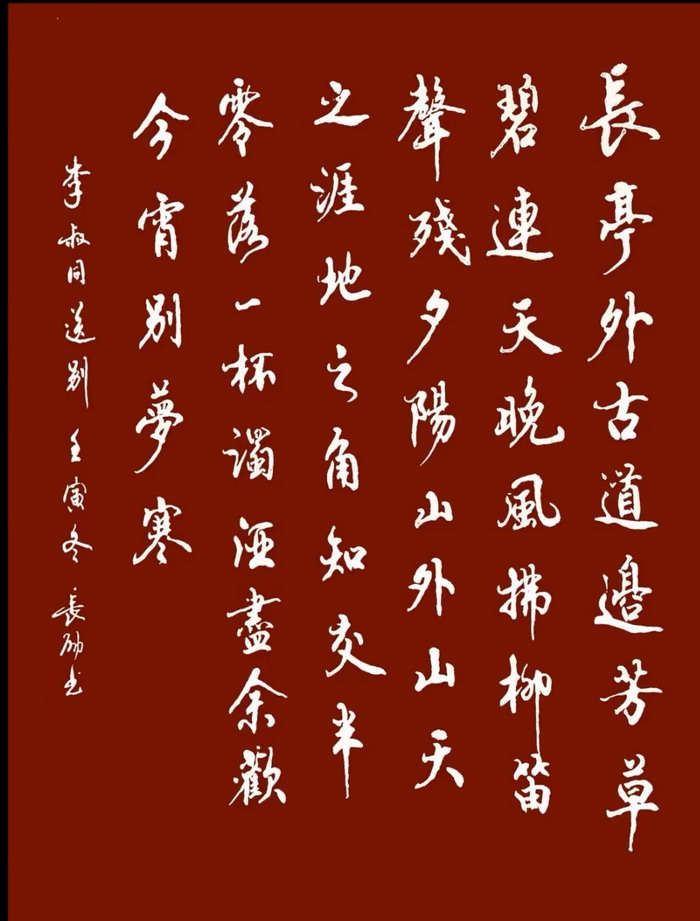 長亭外古道邊芳草
碧連天晚風拂柳笛
聲殘夕陽山外山天
之涯地之角知交半
零落一杯濁酒盡余歡
今宵別夢寒
李叔同送别壬寅冬長励书